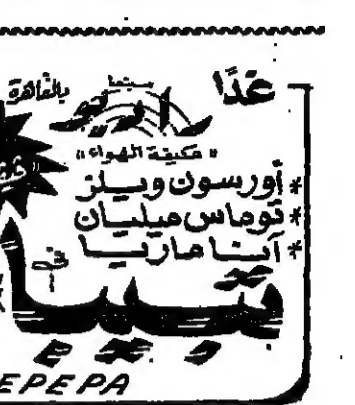 غدًا
سينما
بالقاهرة
"مكيفة الهواء"
* أورسون ويلز
* توماس ميليان
* آنا ماريا
في
تيبيبا
EPEPA